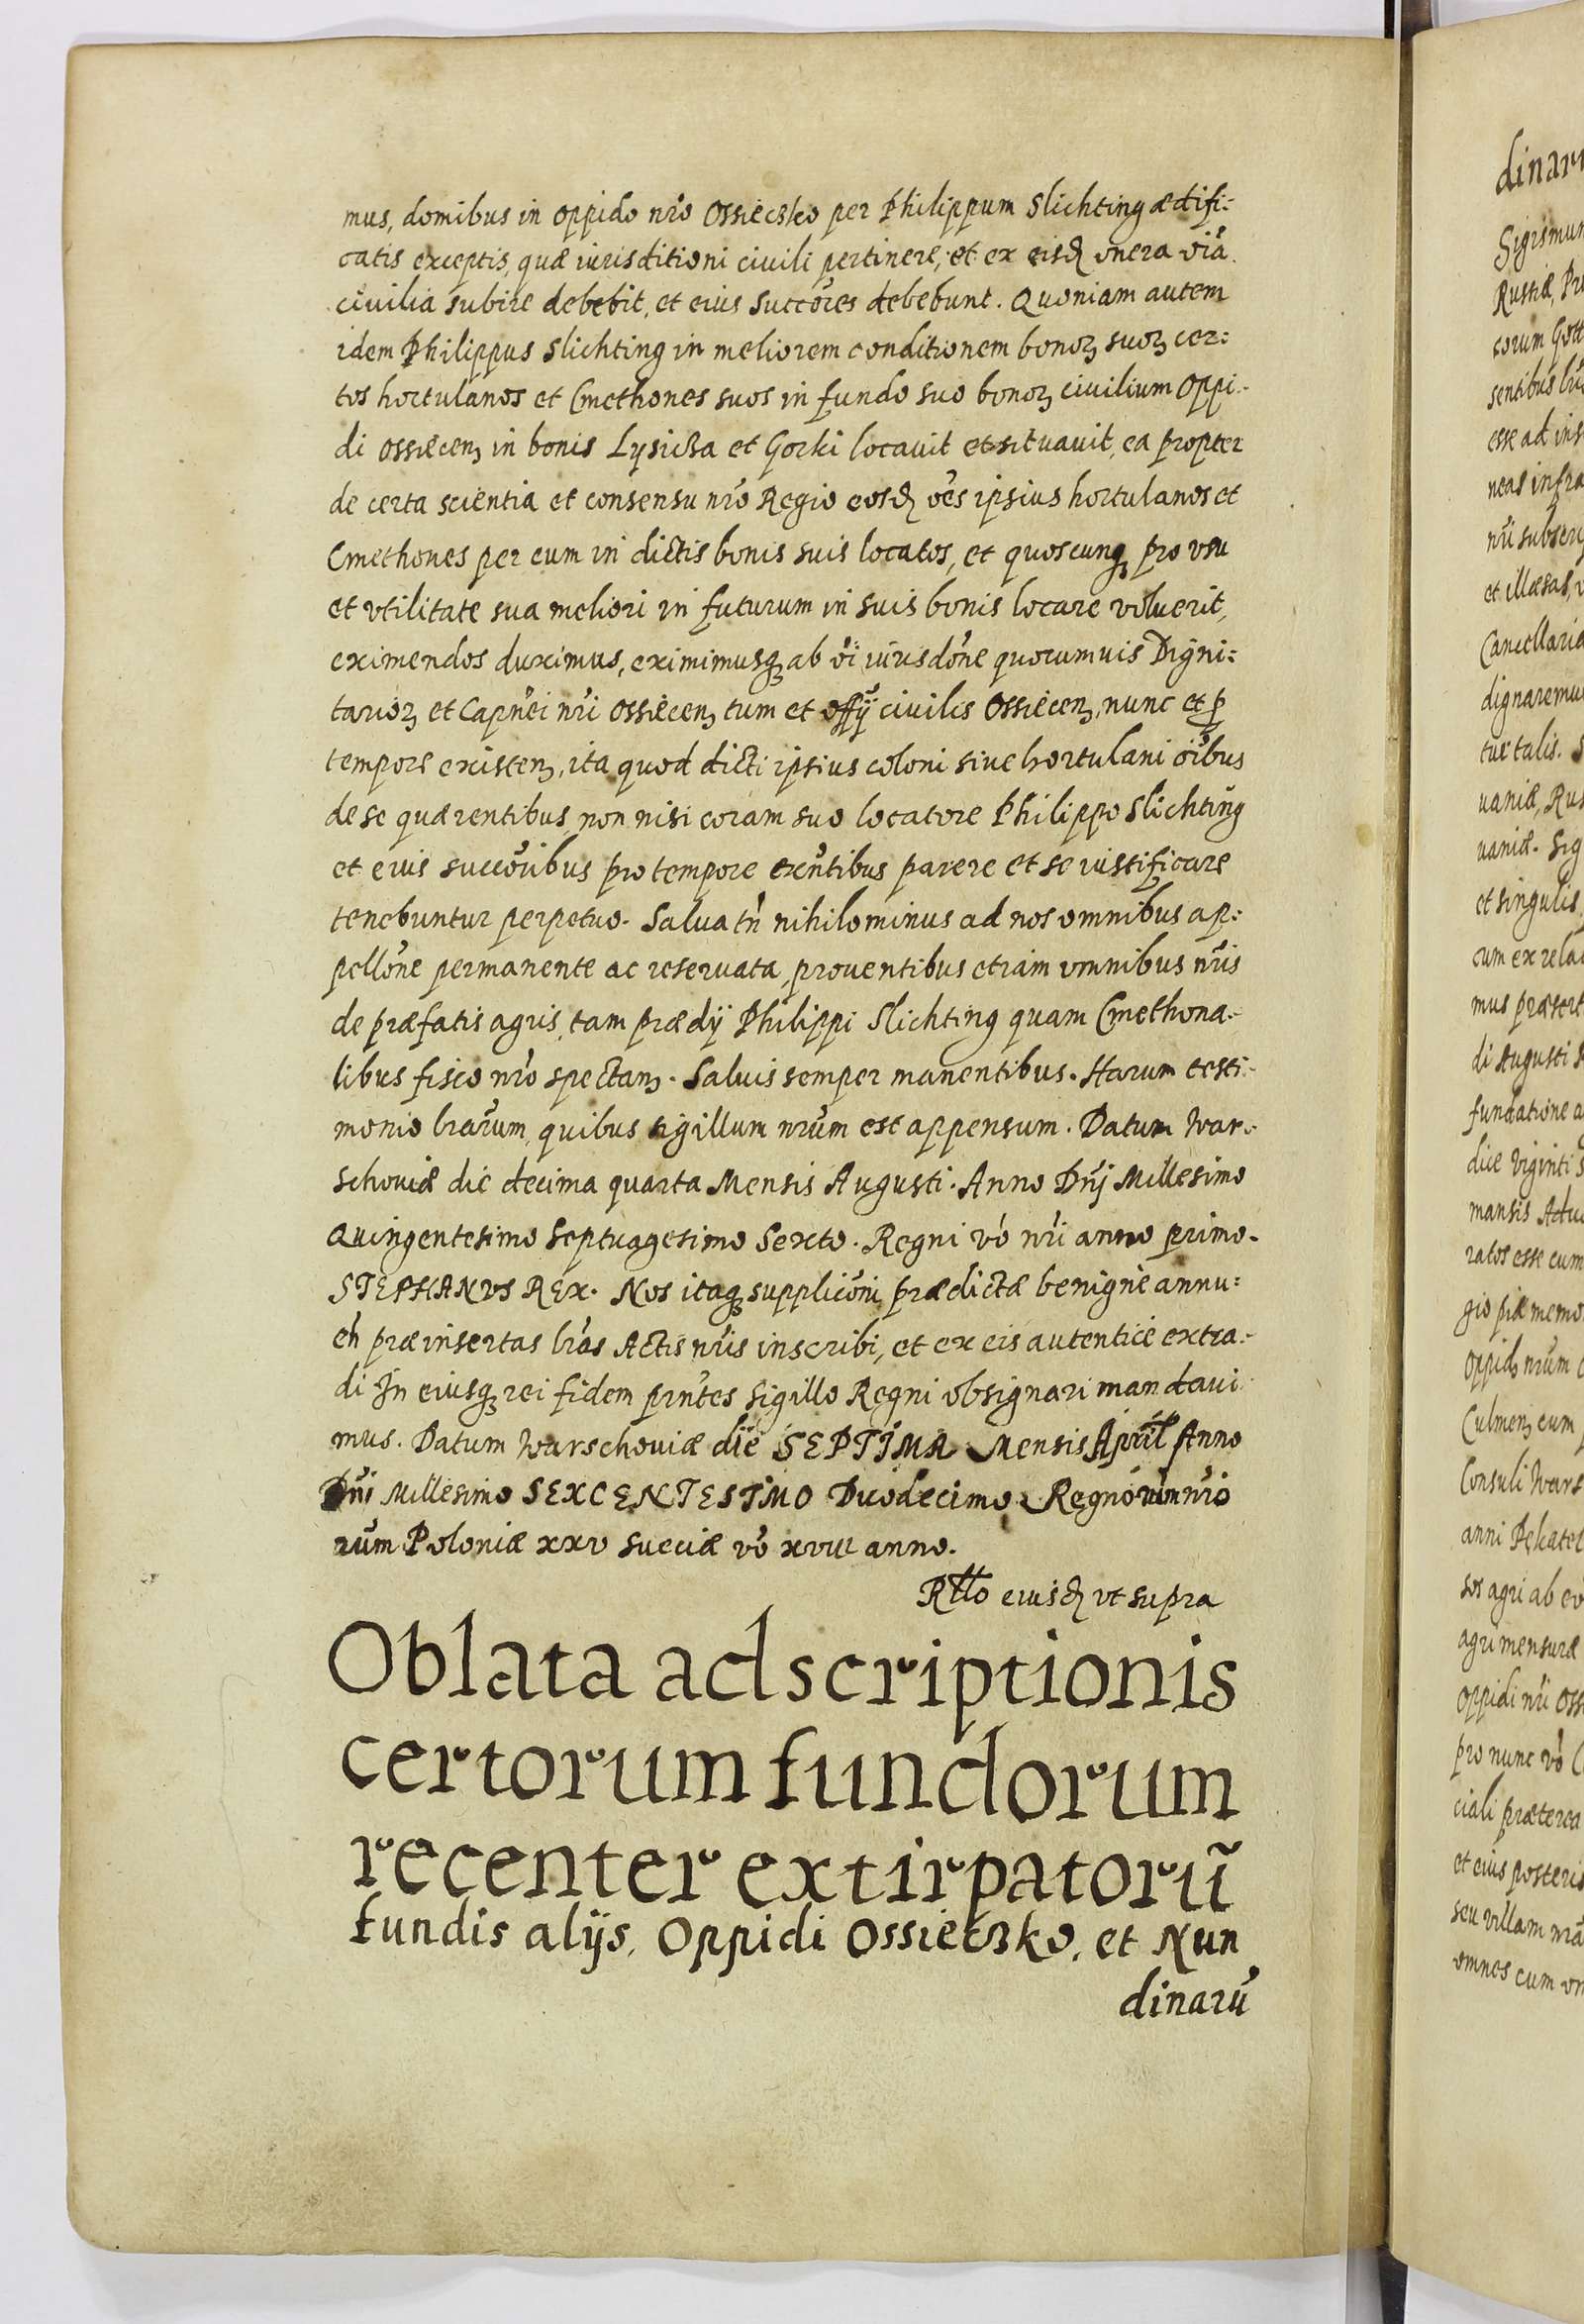 mus, domibus in oppido nr̃o Ossieczko per Philippum Slichting ædifi:
catis exceptis, quæ iurisditioni civili pertinere, et ex eisdẽ onera oĩa
civilia subire debebit, et eius succõres debebunt. Quoniam autem
idem Philippus Slichting in meliorem conditionem bonoꝝ suoꝝ cer:
tos hortulanos et Cmethones suos in fundo suo bonoꝝ civilium Oppi-
di ossiecenꝫ in bonis Lysicza et Gorki locavit et situavit, ea propter
de certa scientia et consensu nr̃o Regio eosdẽ oẽs ipsius hortulanos et
Cmethones per eum in dictis bonis suis locatos, et quoscunqꝫ pro vsu
et vtilitate sua meliori in futurum in suis bonis locare voluerit,
eximendos duximus, eximimusqꝫ ab oĩ iurisdõne quorumuis Digni:
tarioꝝ et Capnẽi nr̃i ossiecenꝫ tum et offÿ civilis Ossiecenꝫ, nunc et ꝓ
tempore existenꝫ, ita quod dicti ipsius coloni siue hortulani oĩbus
de se quærentibus non nisi coram suo locatore Philippo Slichting
et eius succõribus pro tempore exñtibus parere et se iustificare
tenebuntur perpetuo. Salua tñ nihilominus ad nos omnibus ap:
pellõne permanente ac reservata, proventibus etiam omnibus nr̃is
de præfatis agris, tam prædÿ Philippi Slichting quam Cmethona-
libus fisco nr̃o spectanꝫ. Saluis semper manentibus. Harum testi-
monio lr̃arum, quibus sigillum nr̃um est appensum. Datum War-
schoviæ die decima quarta Mensis Augusti. Anno Dnĩ Millesimo
Quingentesimo Septuagesimo Sexto. Regni võ nr̃i anno primo.
STEPHANVS REX. Nos itaqꝫ supplicõni prædictæ benignè annu:
eñ præinsertas lr̃as Actis nr̃is inscribi, et ex eis autenticè extra-
di Jn eiusqꝫ rei fidem prñtes Sigillo Regni obsignari mandavi
mus. Datum Warschoviæ die SEPTJMA Mensis April Anno
Dnĩ Millesimo SEXCENTESJMO Duodecimo Regnorum nr̃o
rum Poloniæ xxv sueciæ võ xviii anno.
Rtto eiusdẽ vt supra
Oblata adscriptionis
certorum fundorum
recenter extirpatorũ
fundis alÿs, Oppidi Ossieczko, et Nun
dinarũ
dinaru
Sigismun
Russiæ, Pru
corum Gott
sentibus lr̃
esse ad ins
neas infra
nr̃i subscri
et illæsas,
Cancellaria
dignaremu
tur talis. S
uaniæ, Rus
uaniæ. Sig
et singulis
cum ex rela
mus præsert
di Augusti
fundatione a
dice viginti s
mansis Adu
ratos esse cum
gio piæ memo
oppidũ nr̃um
Culmenꝫ cum
Consuli Wars
anni
sos agri ab eo
agrimensuræ
oppidi nr̃i Oss
pro nunc võ C
ciali præterea
et eius posteris
seu villam nr̃a
omnes cum